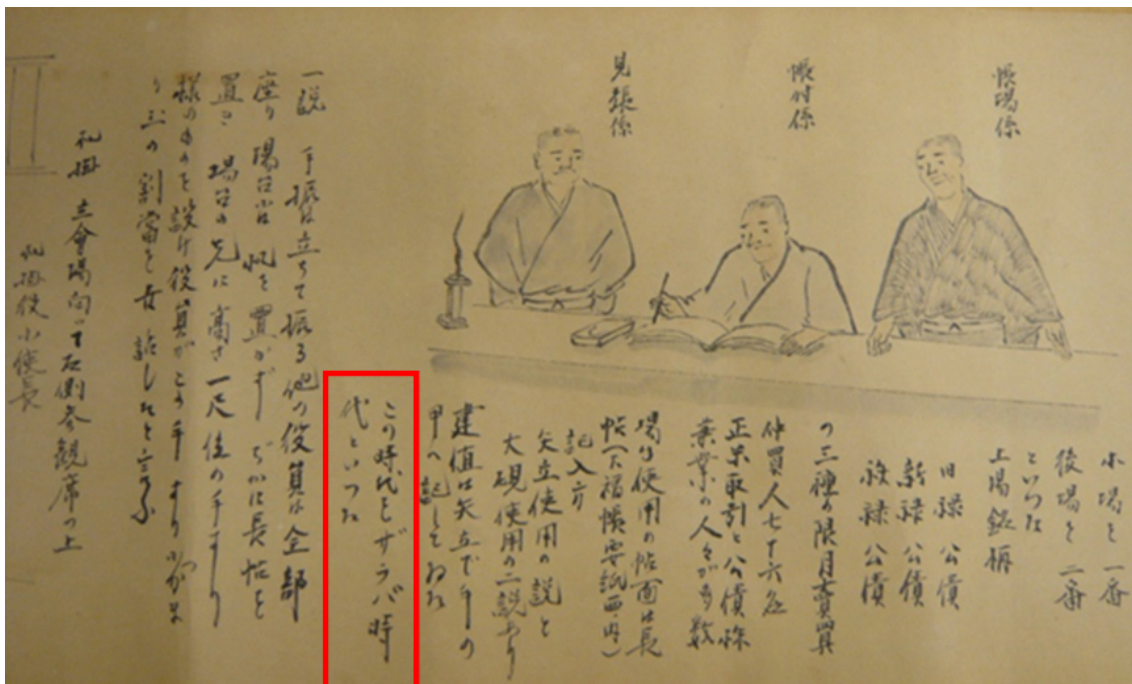 帳場係
帳付係
見張係
本場を一番
後場を二番
といつた
上場銘柄
旧禄公債
新禄公債
秩禄公債
の三種の限月賣買
仲買人七十六名
正米取引と公債株
兼業の人々が多数
場に使用の帖面は長
帖(大福帳要紙西の内)
記入方
矢立使用の説と
大硯使用の二説あり
建値は矢立で手の
甲へ記してゐた
この時代をザラバ時
代といつた
一説 手振は立ちて振る他の役員は全部
座り 場台には机を置かず ぢかに長帖を
置き 場台の先に高さ一尺位の手すり
様のものを設け役員がこの手すり
玉の割當を世話したと言ふ
札掛 立會場向って左側参観席の上
札掛役小使長